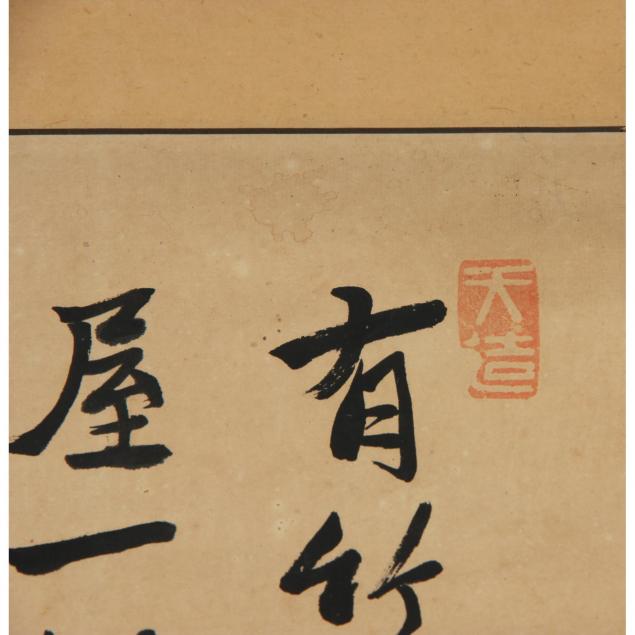 天造
有竹
屋一